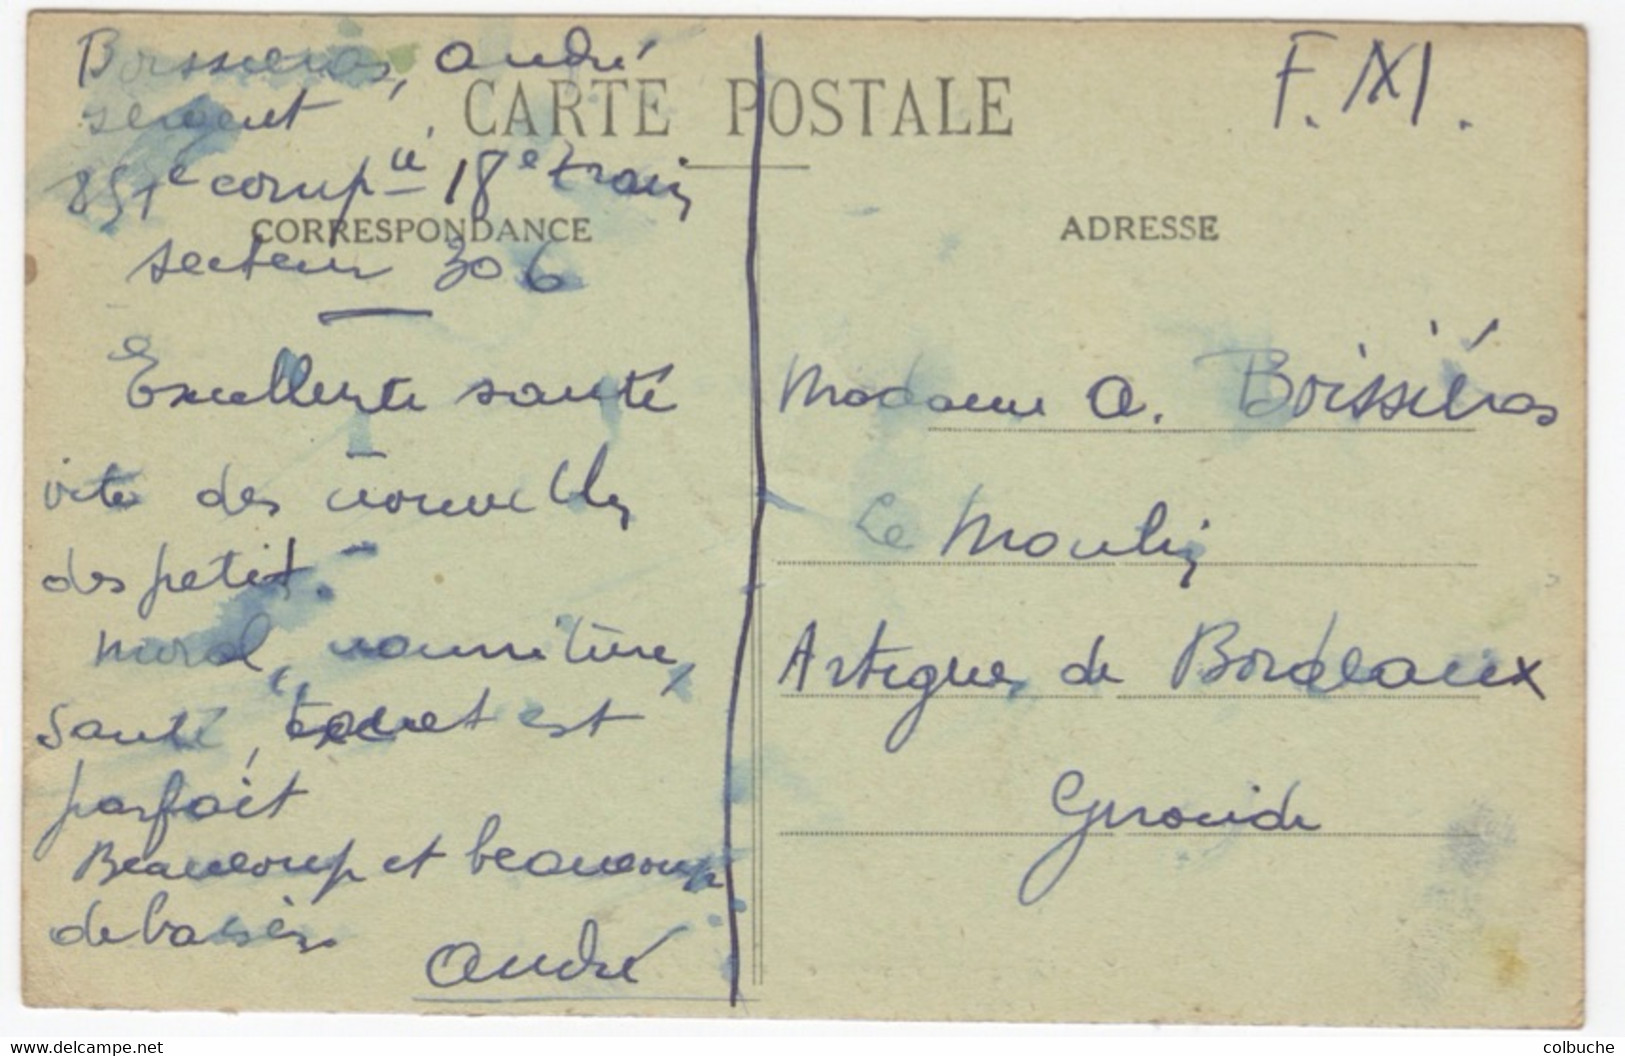 Boissieras, André
sergent
851e compie 18e train
secteur 306
CARTE POSTALE
CORRESPONDANCE
Excellente santé
vite des nouvelles
des petits.
Moral, nourriture,
santé, est
parfait
Beaucoup et beaucoup
de baisers
André
F. M.
ADRESSE
Madame A. Boissiéras
Le Moulin
Artigues de Bordeaux
Gironde
www.delcampe.net
colbuche